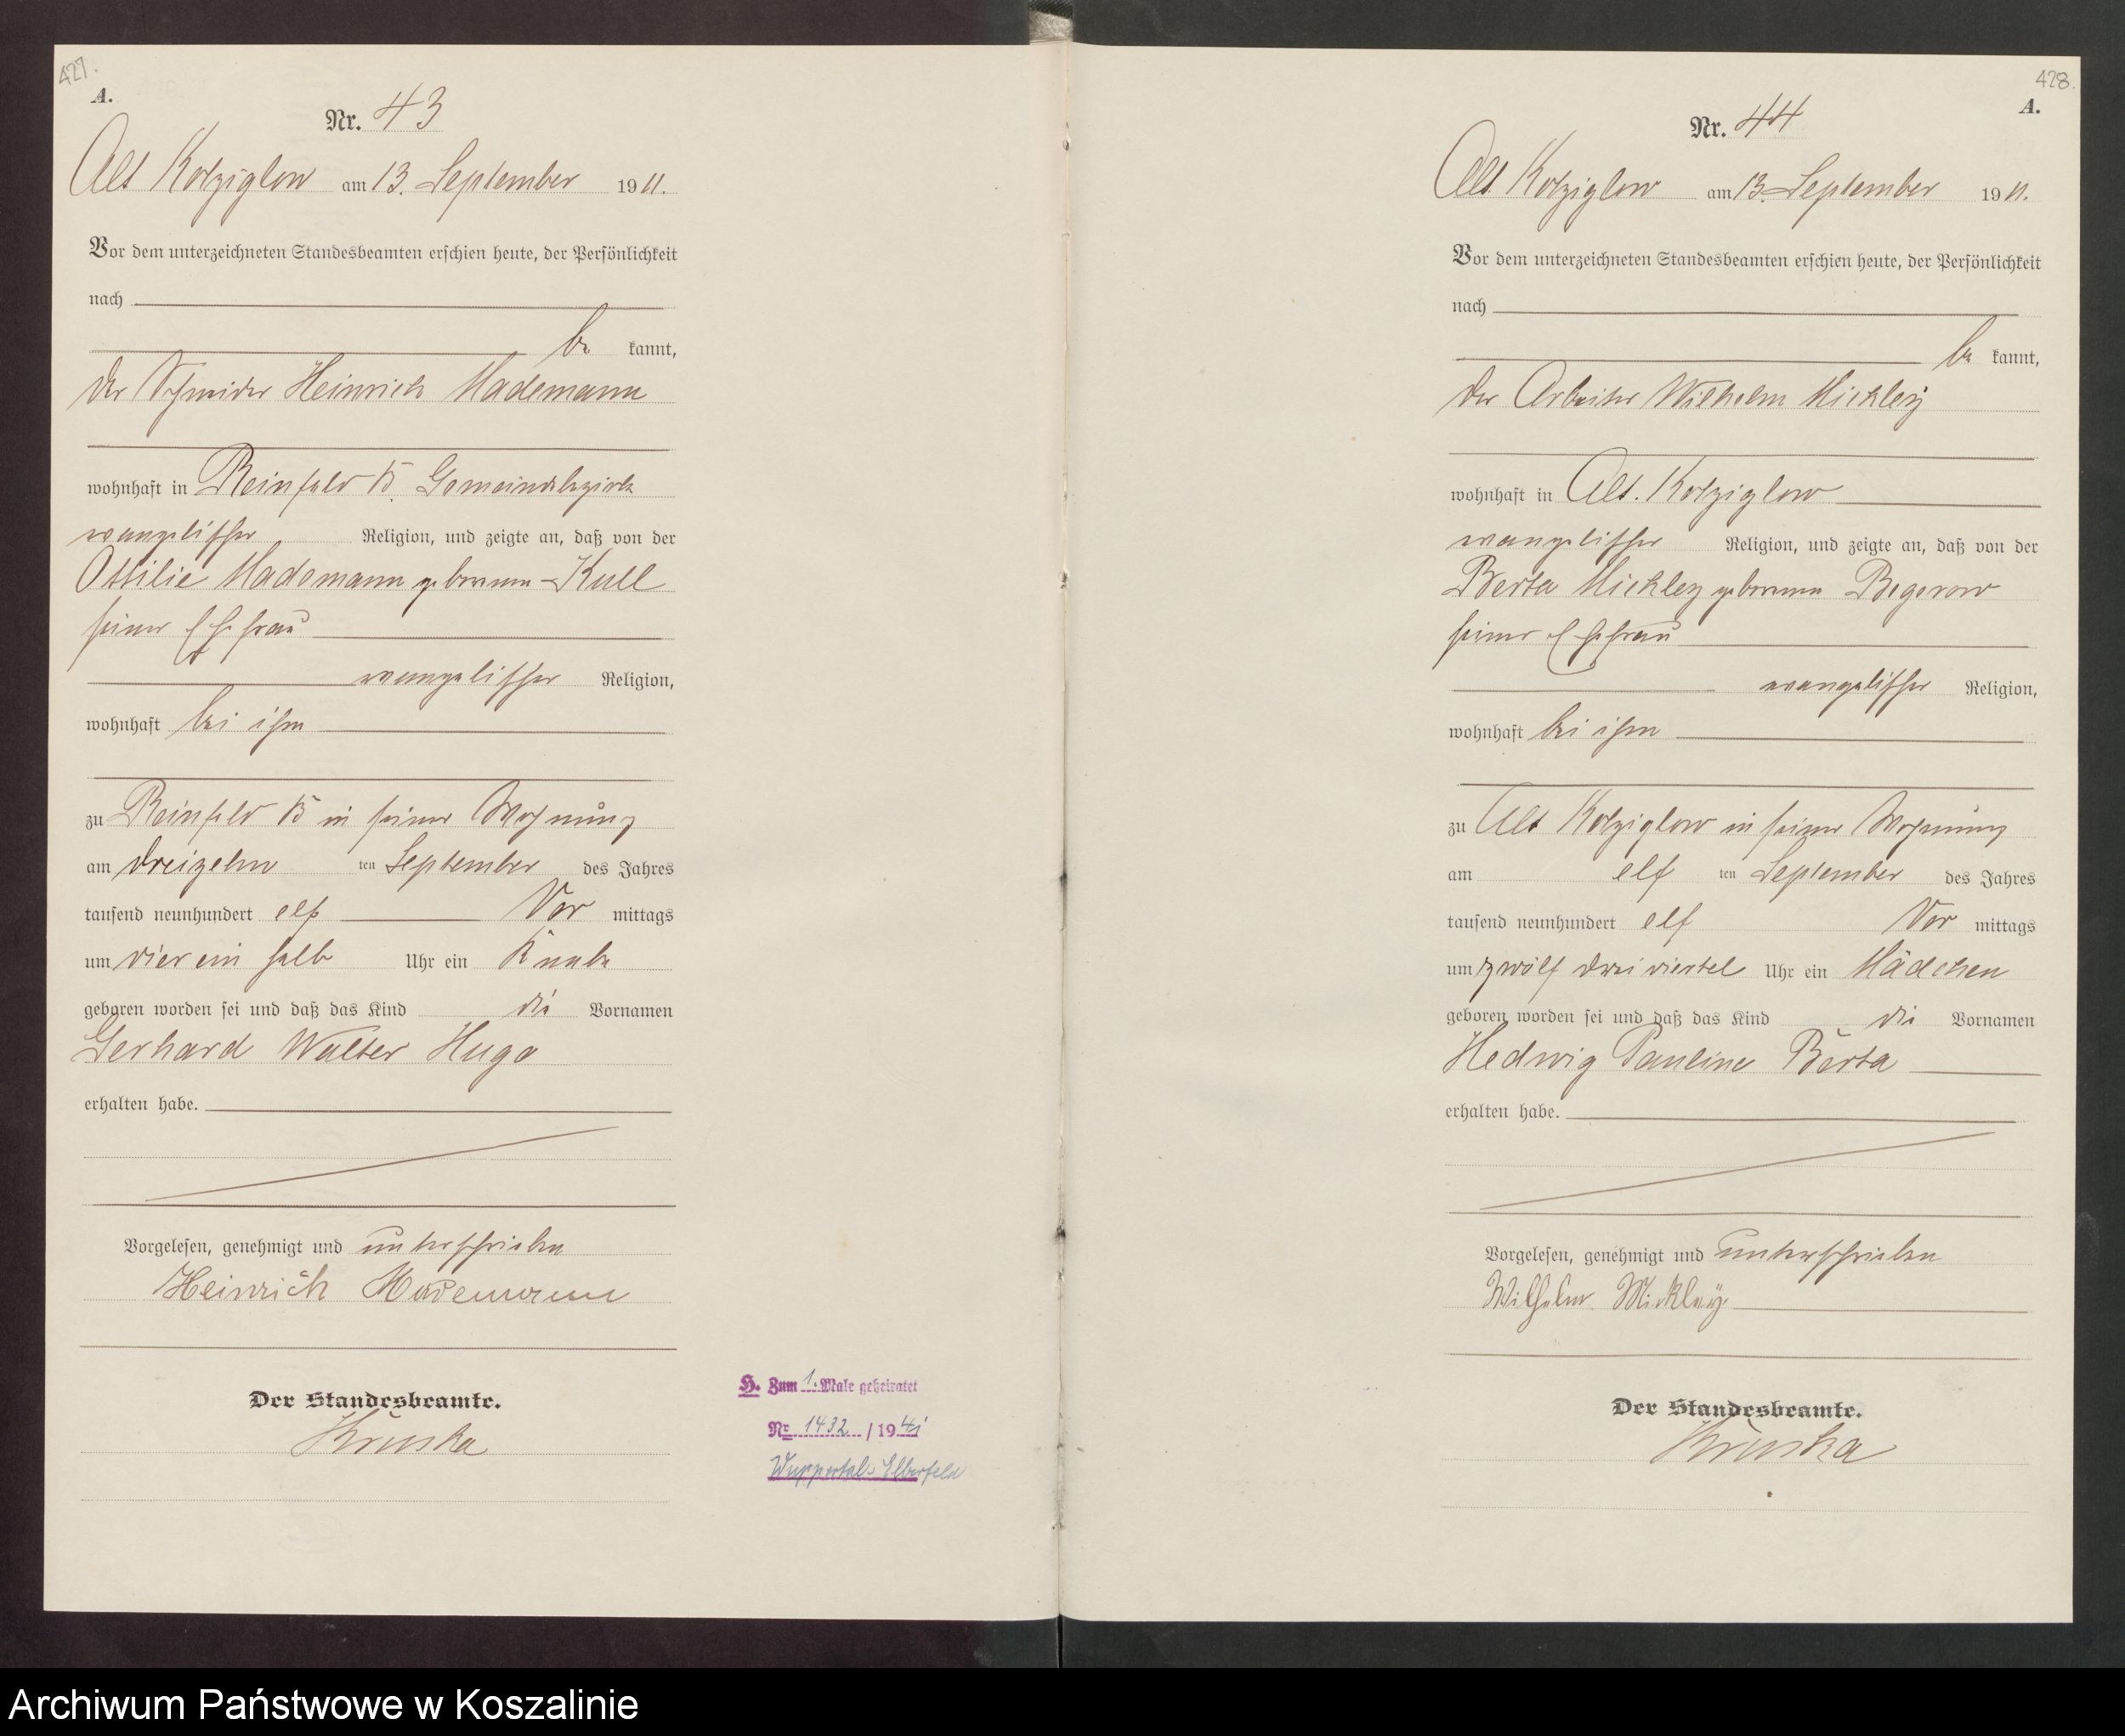 427.
A.
Nr. 43
Alt Kolziglow am 13. September 1911.
Vor dem unterzeichneten Standesbeamten erschien heute, der Persönlichkeit
nach
be kannt,
der Schneider Heinrich Mademann
wohnhaft in Reinfeld B. Gemeindebezirk
evangelischer Religion, und zeigte an, daß von der
Ottilie Mademann geborenen Kull
seiner Ehefrau
evangelischer Religion,
wohnhaft bei ihm
zu Reinfeld B in seiner Wohnung
am dreizehn ten September des Jahres
tausend neunhundert elf Vor mittags
um vier ein halb Uhr ein Knabe
geboren worden sei und daß das Kind die Vornamen
Gerhard Walter Hugo
erhalten habe.
Vorgelesen, genehmigt und unterschrieben
Heinrich Mademann
Der Standesbeamte.
Kruska
H. Zum 1. Male geheiratet
Nr. 1432 / 1941
Wuppertal-Elberfeld
428.
A.
Nr. 44
Alt Kolziglow am 13. September 1911.
Vor dem unterzeichneten Standesbeamten erschien heute, der Persönlichkeit
nach
be kannt,
der Arbeiter Wilhelm Mickley
wohnhaft in Alt. Kolziglow
evangelischer Religion, und zeigte an, daß von der
Berta Mickley geborenen Begerow
seiner Ehefrau
evangelischer Religion,
wohnhaft bei ihm
zu Alt Kolziglow in seiner Wohnung
am elf ten September des Jahres
tausend neunhundert elf Vor mittags
um zwölf dreiviertel Uhr ein Mädchen
geboren worden sei und daß das Kind die Vornamen
Hedwig Pauline Berta
erhalten habe.
Vorgelesen, genehmigt und unterschrieben
Wilhelm Mickley
Der Standesbeamte.
Kruska
Archiwum Państwowe w Koszalinie